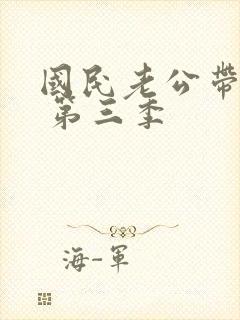 國民老公帶
第三季
海-軍